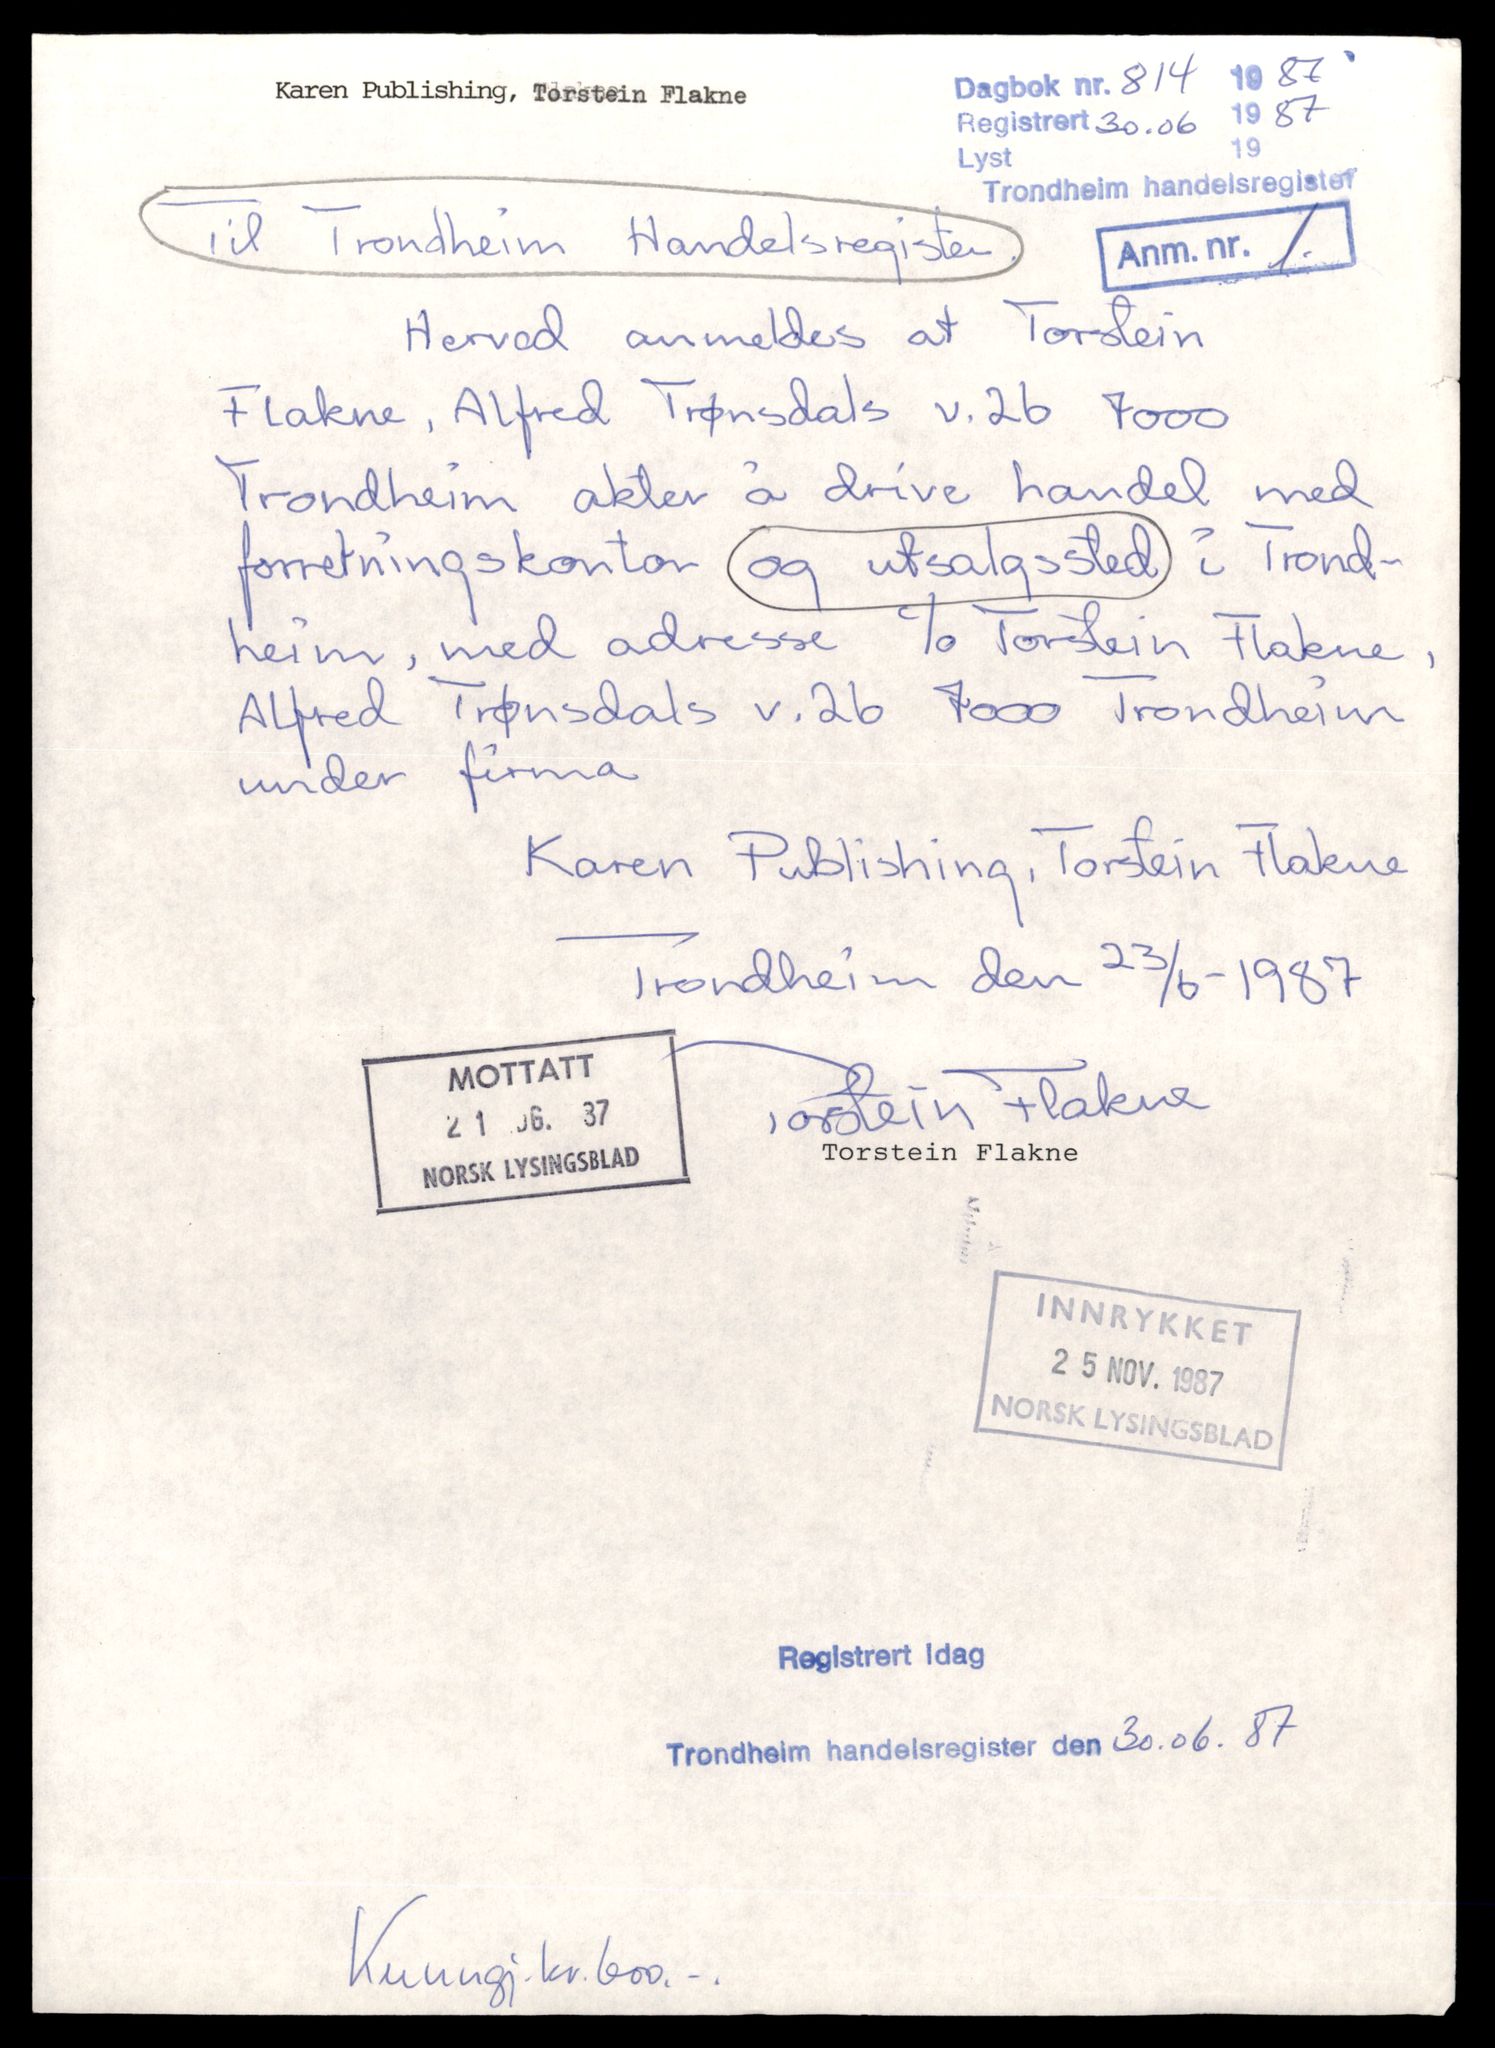 Karen Publishing, Torstein Flakne
Dagbok nr. 814 1987
Registrert 30.06 1987
Lyst 19
Trondheim handelsregister
Anm. nr. 1.
Til Trondheim Handelsregister.
Herved anmeldes at Torstein
Flakne, Alfred Trønsdals v. 2b 7000
Trondheim akter å drive handel med
forretningskontor og utsalgssted i Trond-
heim, med adresse c/o Torstein Flakne,
Alfred Trønsdals v. 2b 7000 Trondheim
under firma
Karen Publishing, Torstein Flakne
Trondheim den 23/6-1987
MOTTATT
NORSK LYSINGSBLAD
Torstein Flakne
Torstein Flakne
INNRYKKET
25 NOV. 1987
NORSK LYSINGSBLAD
Registrert Idag
Trondheim handelsregister den 30.06.87
Kunngj. kr. 600.-.